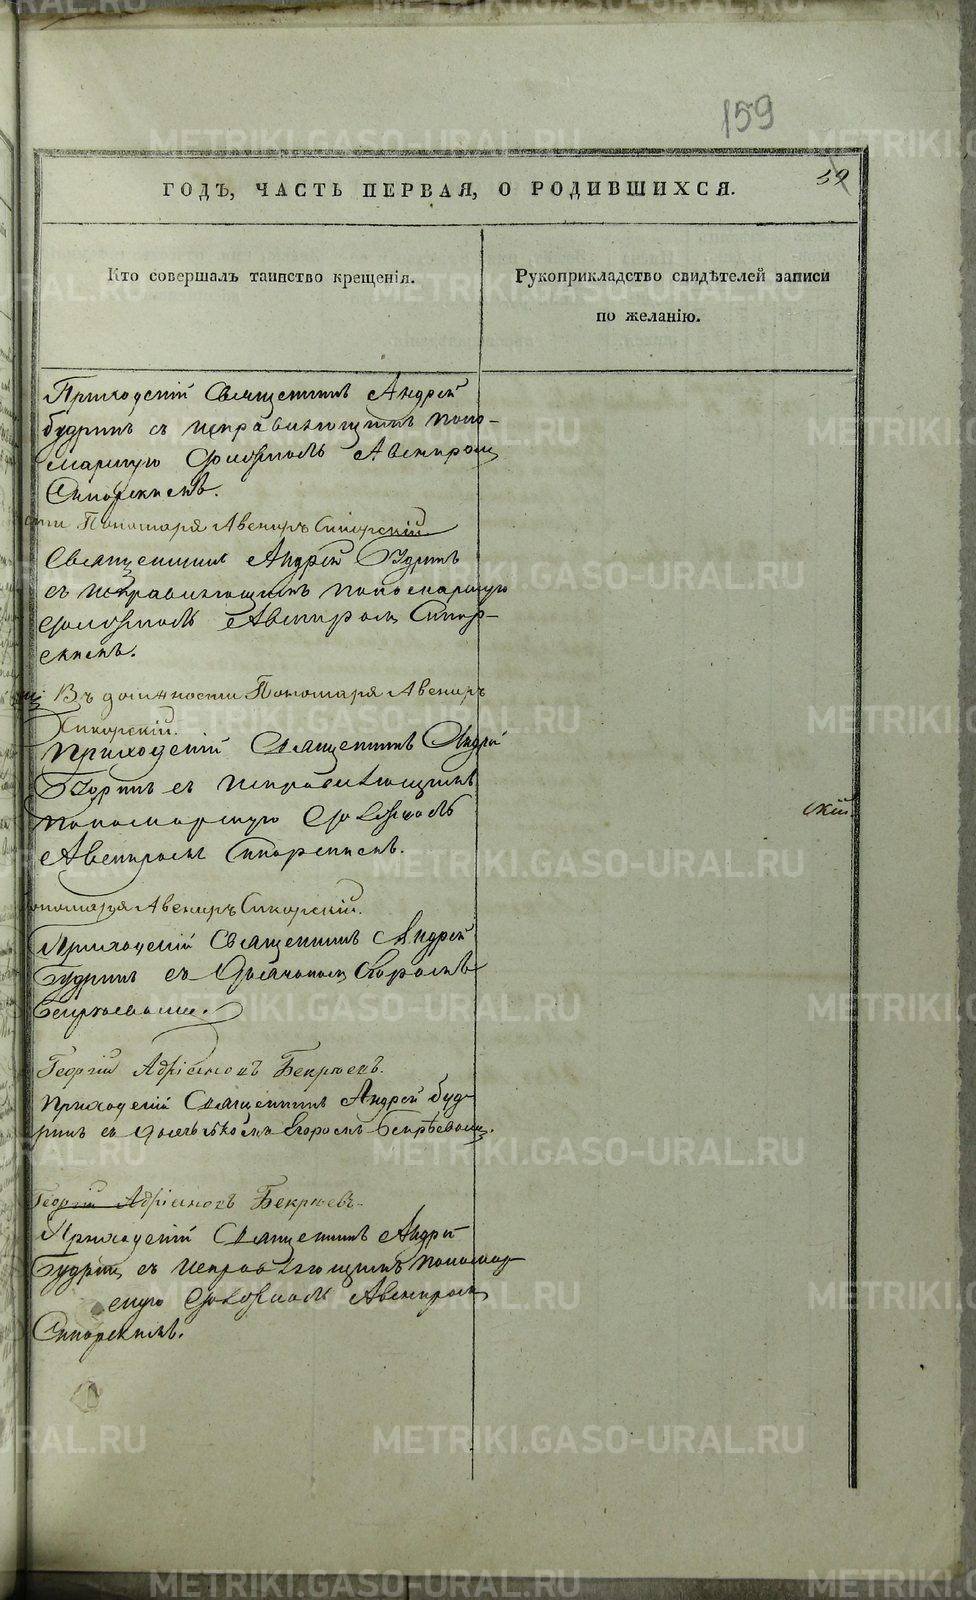 159
59
ГОДЪ, ЧАСТЬ ПЕРВАЯ, О РОДИВШИХСЯ.
Кто совершалъ таинство крещенія.
Рукоприкладство свидѣтелей записи
по желанію.
Приходскій Священникъ Андрей
Будринъ съ исправляющимъ поно-
марскую должность Авениром
Сикорскимъ.
Пономаря Авениръ Сикорскій
Священникъ Андрей Будринъ
съ исправляющимъ пономарскую
должность Авениром Сикор-
скимъ.
Въ должности Пономаря Авениръ
Сикорскій.
Приходскій Священникъ Андрей
Будринъ съ исправляющимъ
пономарскую должность
Авениромъ Сикорскимъ.
скій.
Пономаря Авениръ Сикорскій.
Приходскій Священникъ Андрей
Будринъ съ Дьячком Егоромъ
Бекрюевым.
Георгій Адріановъ Бекрюевъ.
Приходскій Священникъ Андрей Буд-
ринъ съ Егоромъ
Георгій Адріановъ Бекрюевъ
Приходскій Священникъ Андрей
Будрин съ исправляющимъ пономар
скую должность Авениром
Сикорскимъ.
METRIKI.GASO-URAL.RU